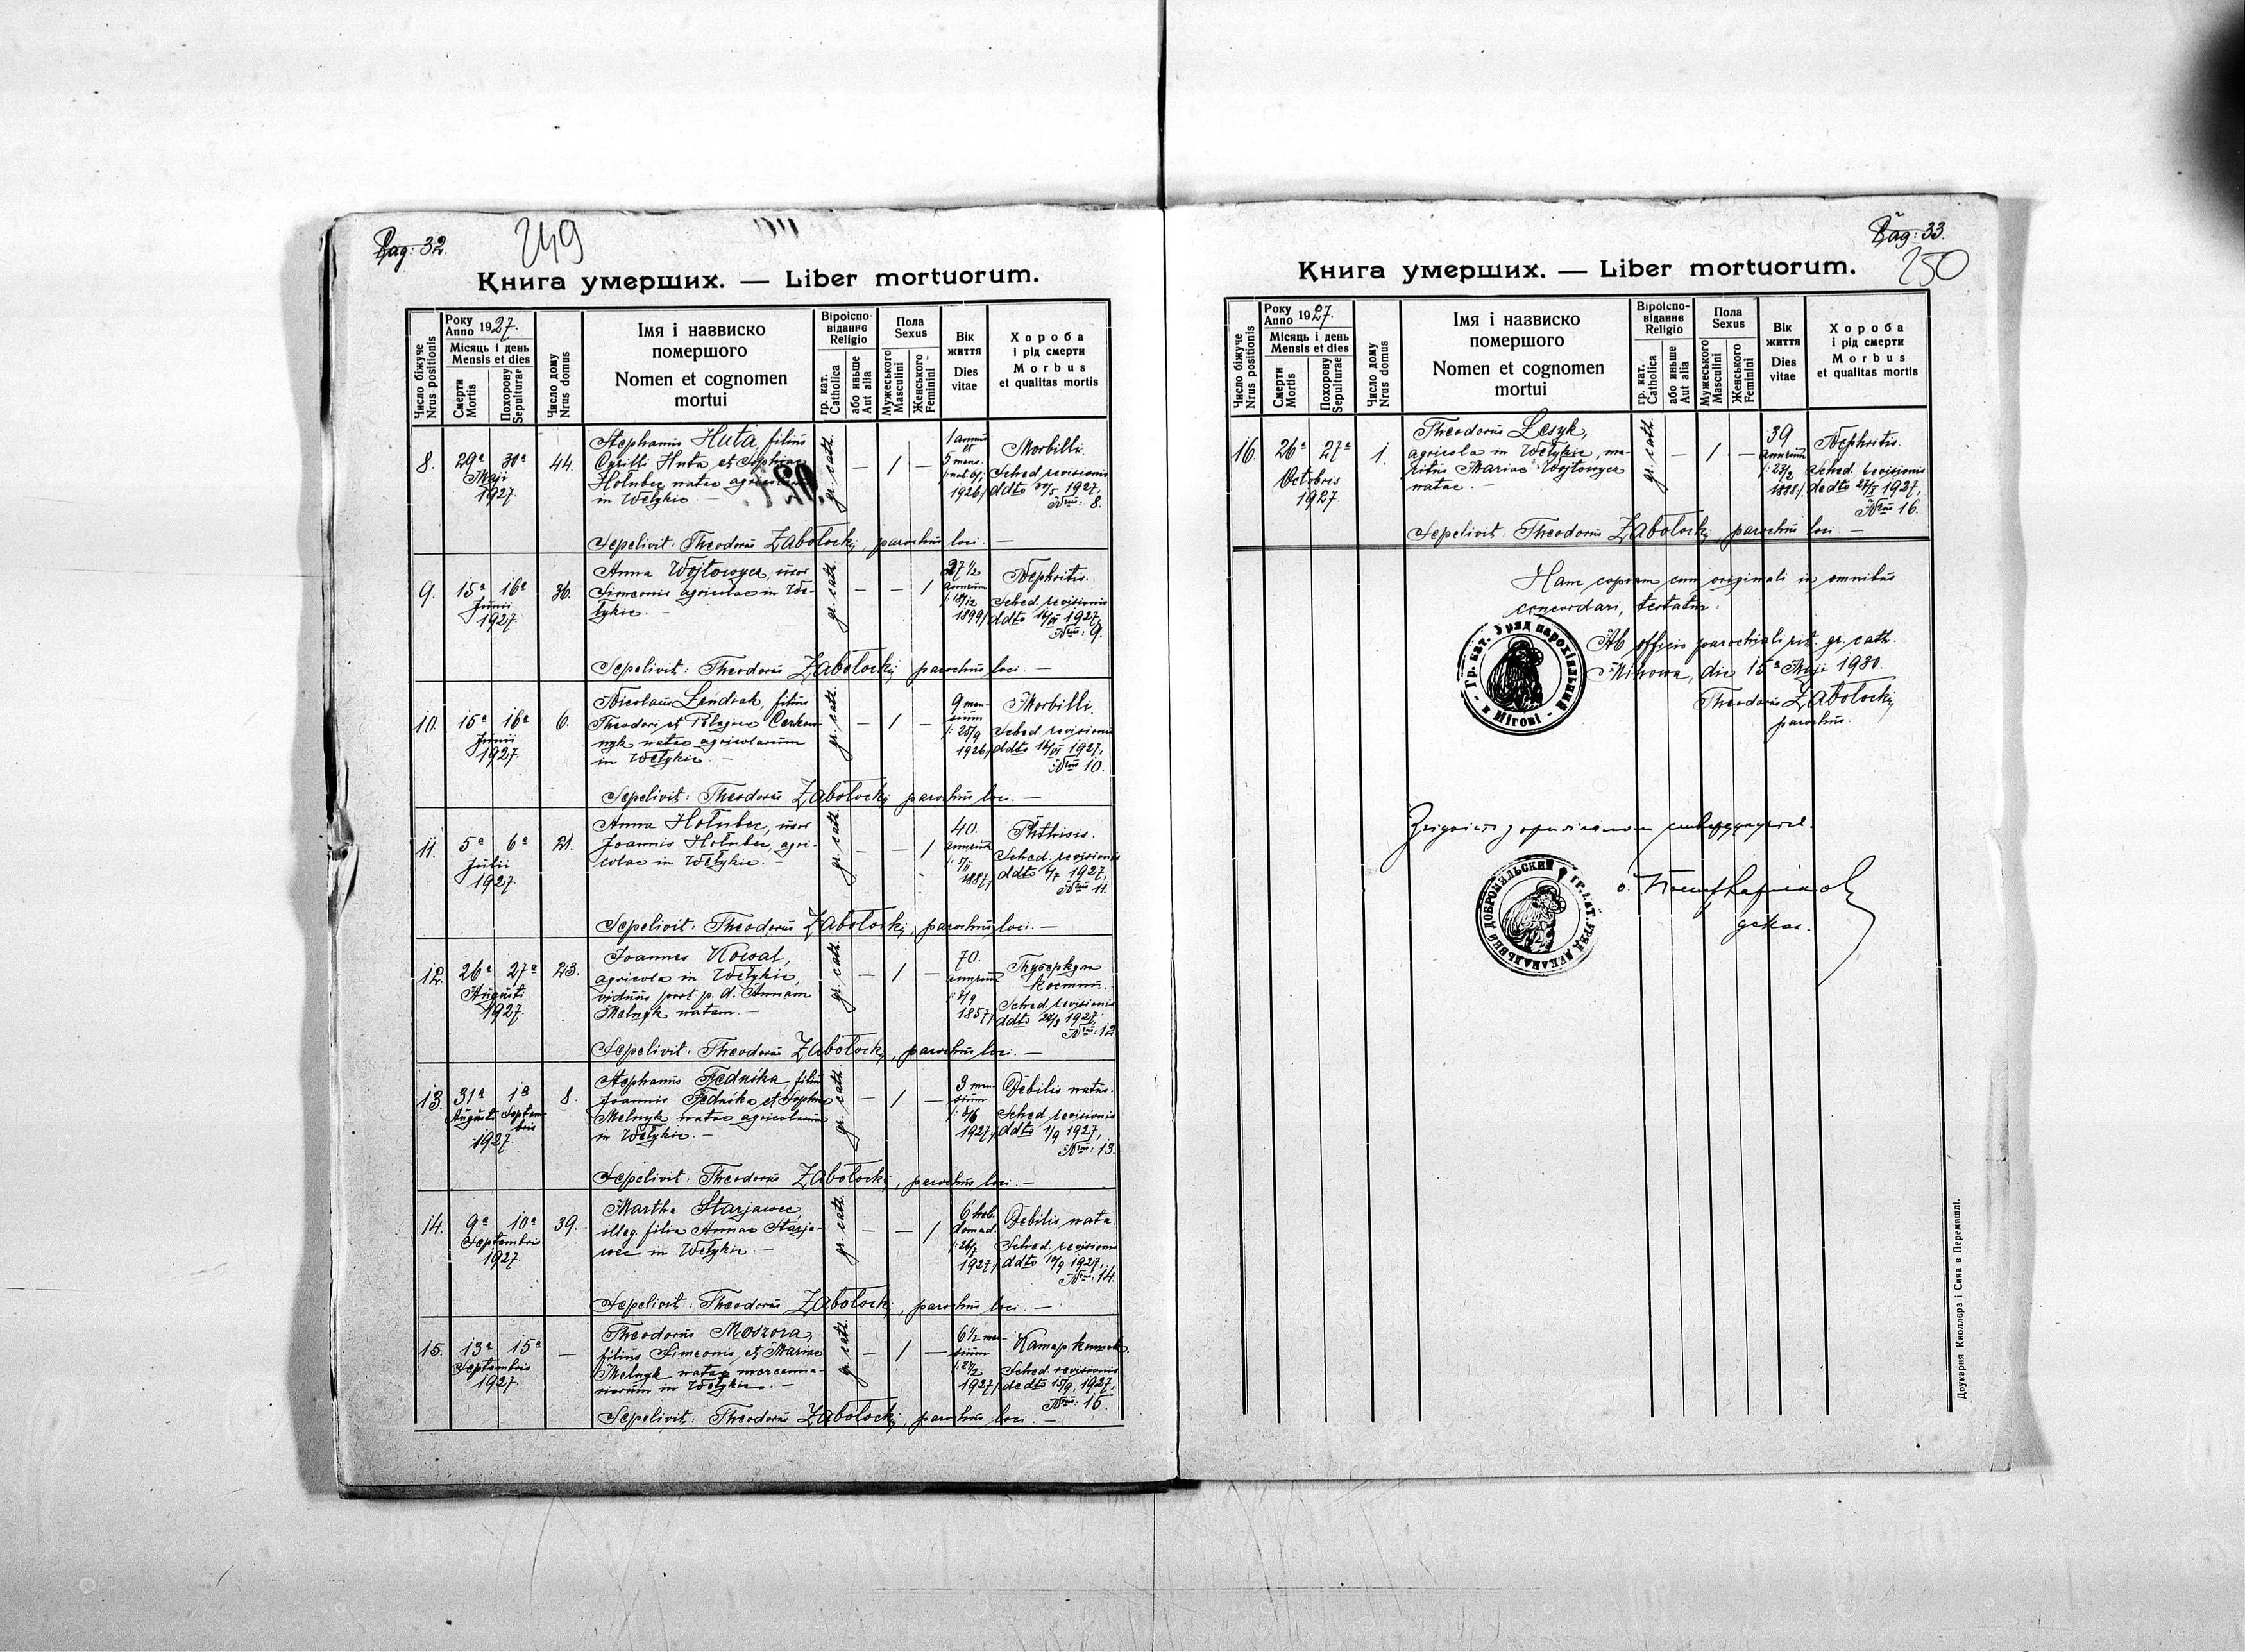 Pag: 32.
249
Книга умерших. — Liber mortuorum.
Число біжуче
Nrus positionis
Року
Anno 1927.
Місяць і день
Mensis et dies
Смерти
Mortis
Похорону
Sepulturae
Число дому
Nrus domus
Імя і назвиско
помершого
Nomen et cognomen
mortui
Віроіспо-
відання
Religio
гр. кат.
Catholica
або иньше
Aut alia
Пола
Sexus
Мужеського
Masculini
Женського
Feminini
Вік
життя
Dies
vitae
Хороба
і рід смерти
Morbus
et qualitas mortis
8. 29ª 30ª Maji 1927. 44.
Stephanus Huta, filius
Cyrilli Huta et Sophiae
Hołubec natae
in Wełykie. —
gr. cath. — / —
1 annus
et
5 mens.
1926/
Morbilli.
Sched. revisionis
ddto 1927,
Nrus: 8.
Sepelivit: Theodorus Zabolockij, parochus loci. —
9. 15ª 16ª Junii 1927. 36.
Anna Wojtowycz, uxor
Simeonis agricolae in We-
łykie. —
gr. cath. — — /
27 1/2
annorum
/: 18/12
1899/
Nephritis.
Sched. revisionis
ddto 16/VI 1927,
Nrus: 9.
Sepelivit: Theodorus Zabolockij, parochus loci. —
10. 15ª 16ª Junii 1927. 6.
Nicolaus Lendiak, filius
Theodori et Pelagiae
natae agricolarum
in Wełykie. —
gr. cath. — / —
9 men-
sium
/: 25/9
1926/
Morbilli.
Sched. revisionis
ddto 16/VI 1927,
Nrus 10.
Sepelivit: Theodorus Zabolockij parochus loci. —
11. 5ª 6ª Julii 1927. 21.
Anna Hołubec, uxor
Joannis Hołubec, agri-
colae in Wełykie. —
gr. cath. — — /
40.
annorum
1887/
Phthisis.
Sched. revisionis
ddto 6/7 1927,
Nrus 11
Sepelivit: Theodorus Zabolockij, parochus loci. —
12. 26ª 27ª Augusti 1927. 23.
Joannes Kowal,
agricola in Wełykie,
viduus post p. d. Annam
Melnyk natam. —
gr. cath. — / —
70.
annorum
1857/
Туберкул
костий.
Sched. revisionis
ddto 1927,
Nrus: 12
Sepelivit: Theodorus Zabolockij, parochus loci. —
13. 31ª Augusti 1ª Septembris 1927. 8.
Stephanus Fednika, filius
Joannis Fednika et Sophiae
Melnyk natae agricolarum
in Wełykie. —
gr. cath. — / —
3 men-
sium
1927/
Debilis natus.
Sched. revisionis
ddto 1/9 1927,
Nrus: 13.
Sepelivit: Theodorus Zabolockij, parochus loci. —
14. 9ª 10ª Septembris 1927. 39.
Martha Starjawec,
illeg. filia Annae Starja-
wec in Wełykie. —
gr. cath. — — /
6 heb-
domad.
1927/
Debilis nata.
Sched. revisionis
ddto 10/9 1927,
Nrus: 14.
Sepelivit: Theodorus Zabolockij, parochus loci. —
15. 13ª 15ª Septembris 1927. —
Theodorus Moszora,
filius Simeonis et Mariae
Melnyk natae mercenna-
riorum in Wełykie. —
gr. cath. — / —
6 1/2 men-
sium
1927/
Катар кишок.
Sched. revisionis
de dto 15/9, 1927,
Nrus: 15.
Sepelivit: Theodorus Zabolockij, parochus loci. —
Pag: 33.
250
Книга умерших. — Liber mortuorum.
Число біжуче
Nrus positionis
Року
Anno 1927.
Місяць і день
Mensis et dies
Смерти
Mortis
Похорону
Sepulturae
Число дому
Nrus domus
Імя і назвиско
помершого
Nomen et cognomen
mortui
Віроіспо-
відання
Religio
гр. кат.
Catholica
або иньше
Aut alia
Пола
Sexus
Мужеського
Masculini
Женського
Feminini
Вік
життя
Dies
vitae
Хороба
і рід смерти
Morbus
et qualitas mortis
16. 26ª 27ª Octobris 1927. 1.
Theodorus Lesyk,
agricola in Wełykie, ma-
ritus Mariae Wojtowycz
natae. —
gr. cath. — / —
39
annorum
/: 23/2
1888/.
Nephritis.
Sched. revisionis
de dto 27/X 1927,
Nrus 16.
Sepelivit: Theodorus Zabolockij, parochus loci. —
Hanc copiam cum originali in omnibus
concordari, testatur.
Ab officio parochiali rit. gr. cath.
Mihowa, die 15ª Maji 1930.
Theodorus Zabolockij
parochus.
Гр. кат. Уряд парохіяльний в Мігові
Згідність з оригіналом стверджується.
декан.
ГР. КАТ. УРЯД ДЕКАНАЛЬНИЙ ДОБРОМИЛЬСКИЙ
Друкарня Кноллєра і Сина в Перемишлі.